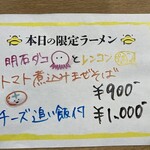 本日の限定ラーメン
明石ダコとレンコン
トマト煮込みまぜそば
¥900-
チーズ追い飯付
¥1,000-